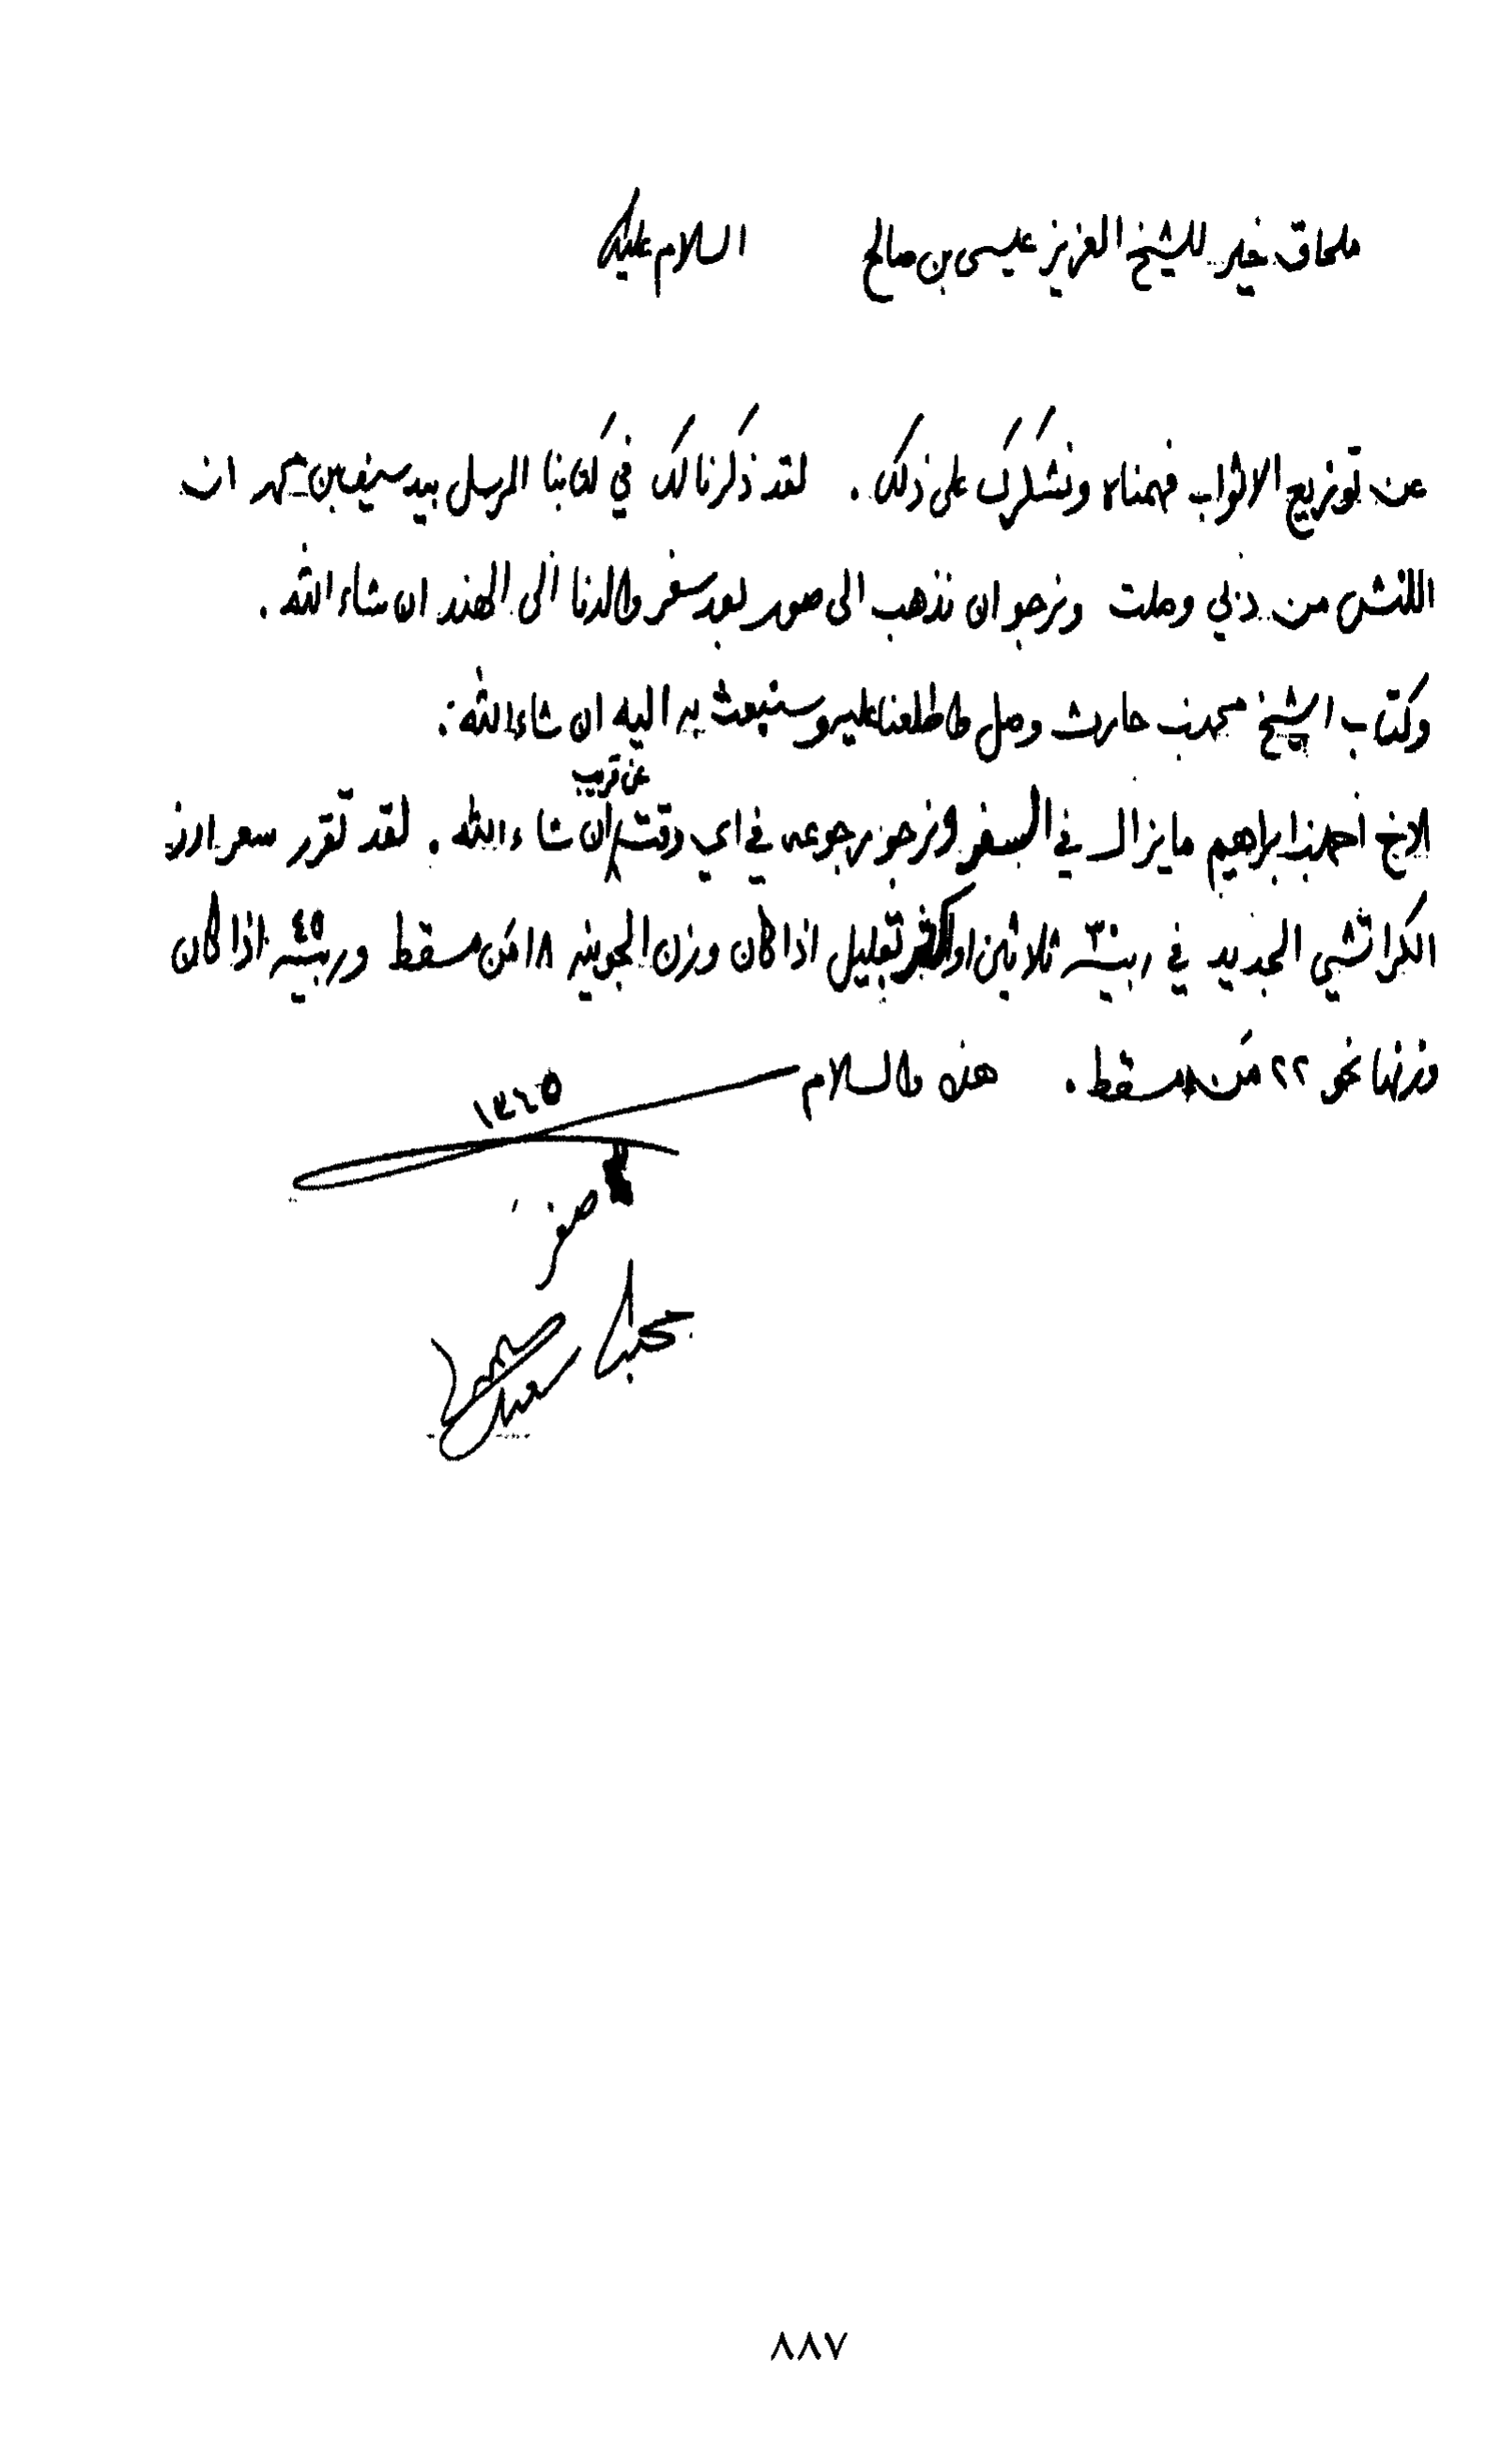 ملحاق خير للشيخ العزيز عيسى بن صالح السلام عليك
عن توزيع الاثواب فهمناه ونشكرك على ذلك . لقد ذكرنا لك في كتابنا المرسل بيد سيف بن ان
اللنش من دبي وصلت ونرجو ان نذهب الى صور بعد سفر والدنا الى الهند ان شاء الله .
وكتاب الشيخ محمد بن حارث وصل واطلعنا عليه وسنبعث به اليه ان شاء الله .
عن قريب
الاخ احمد بن ابراهيم ما يزال في السفر ونرجو رجوعه في اي وقت ان شاء الله . لقد تقرر سعر ارز
الكراتشي الجديد في ربية ٣٠ ثلاثين او اكثر بقليل اذا كان وزن الجونيه ١٨ من مسقط وربية ٤٥ اذا كان
وزنها نحو ٢٢ من مسقط . هذه والسلام
١٣٦٥
صفر
محبك
سعيد
٨٨٧